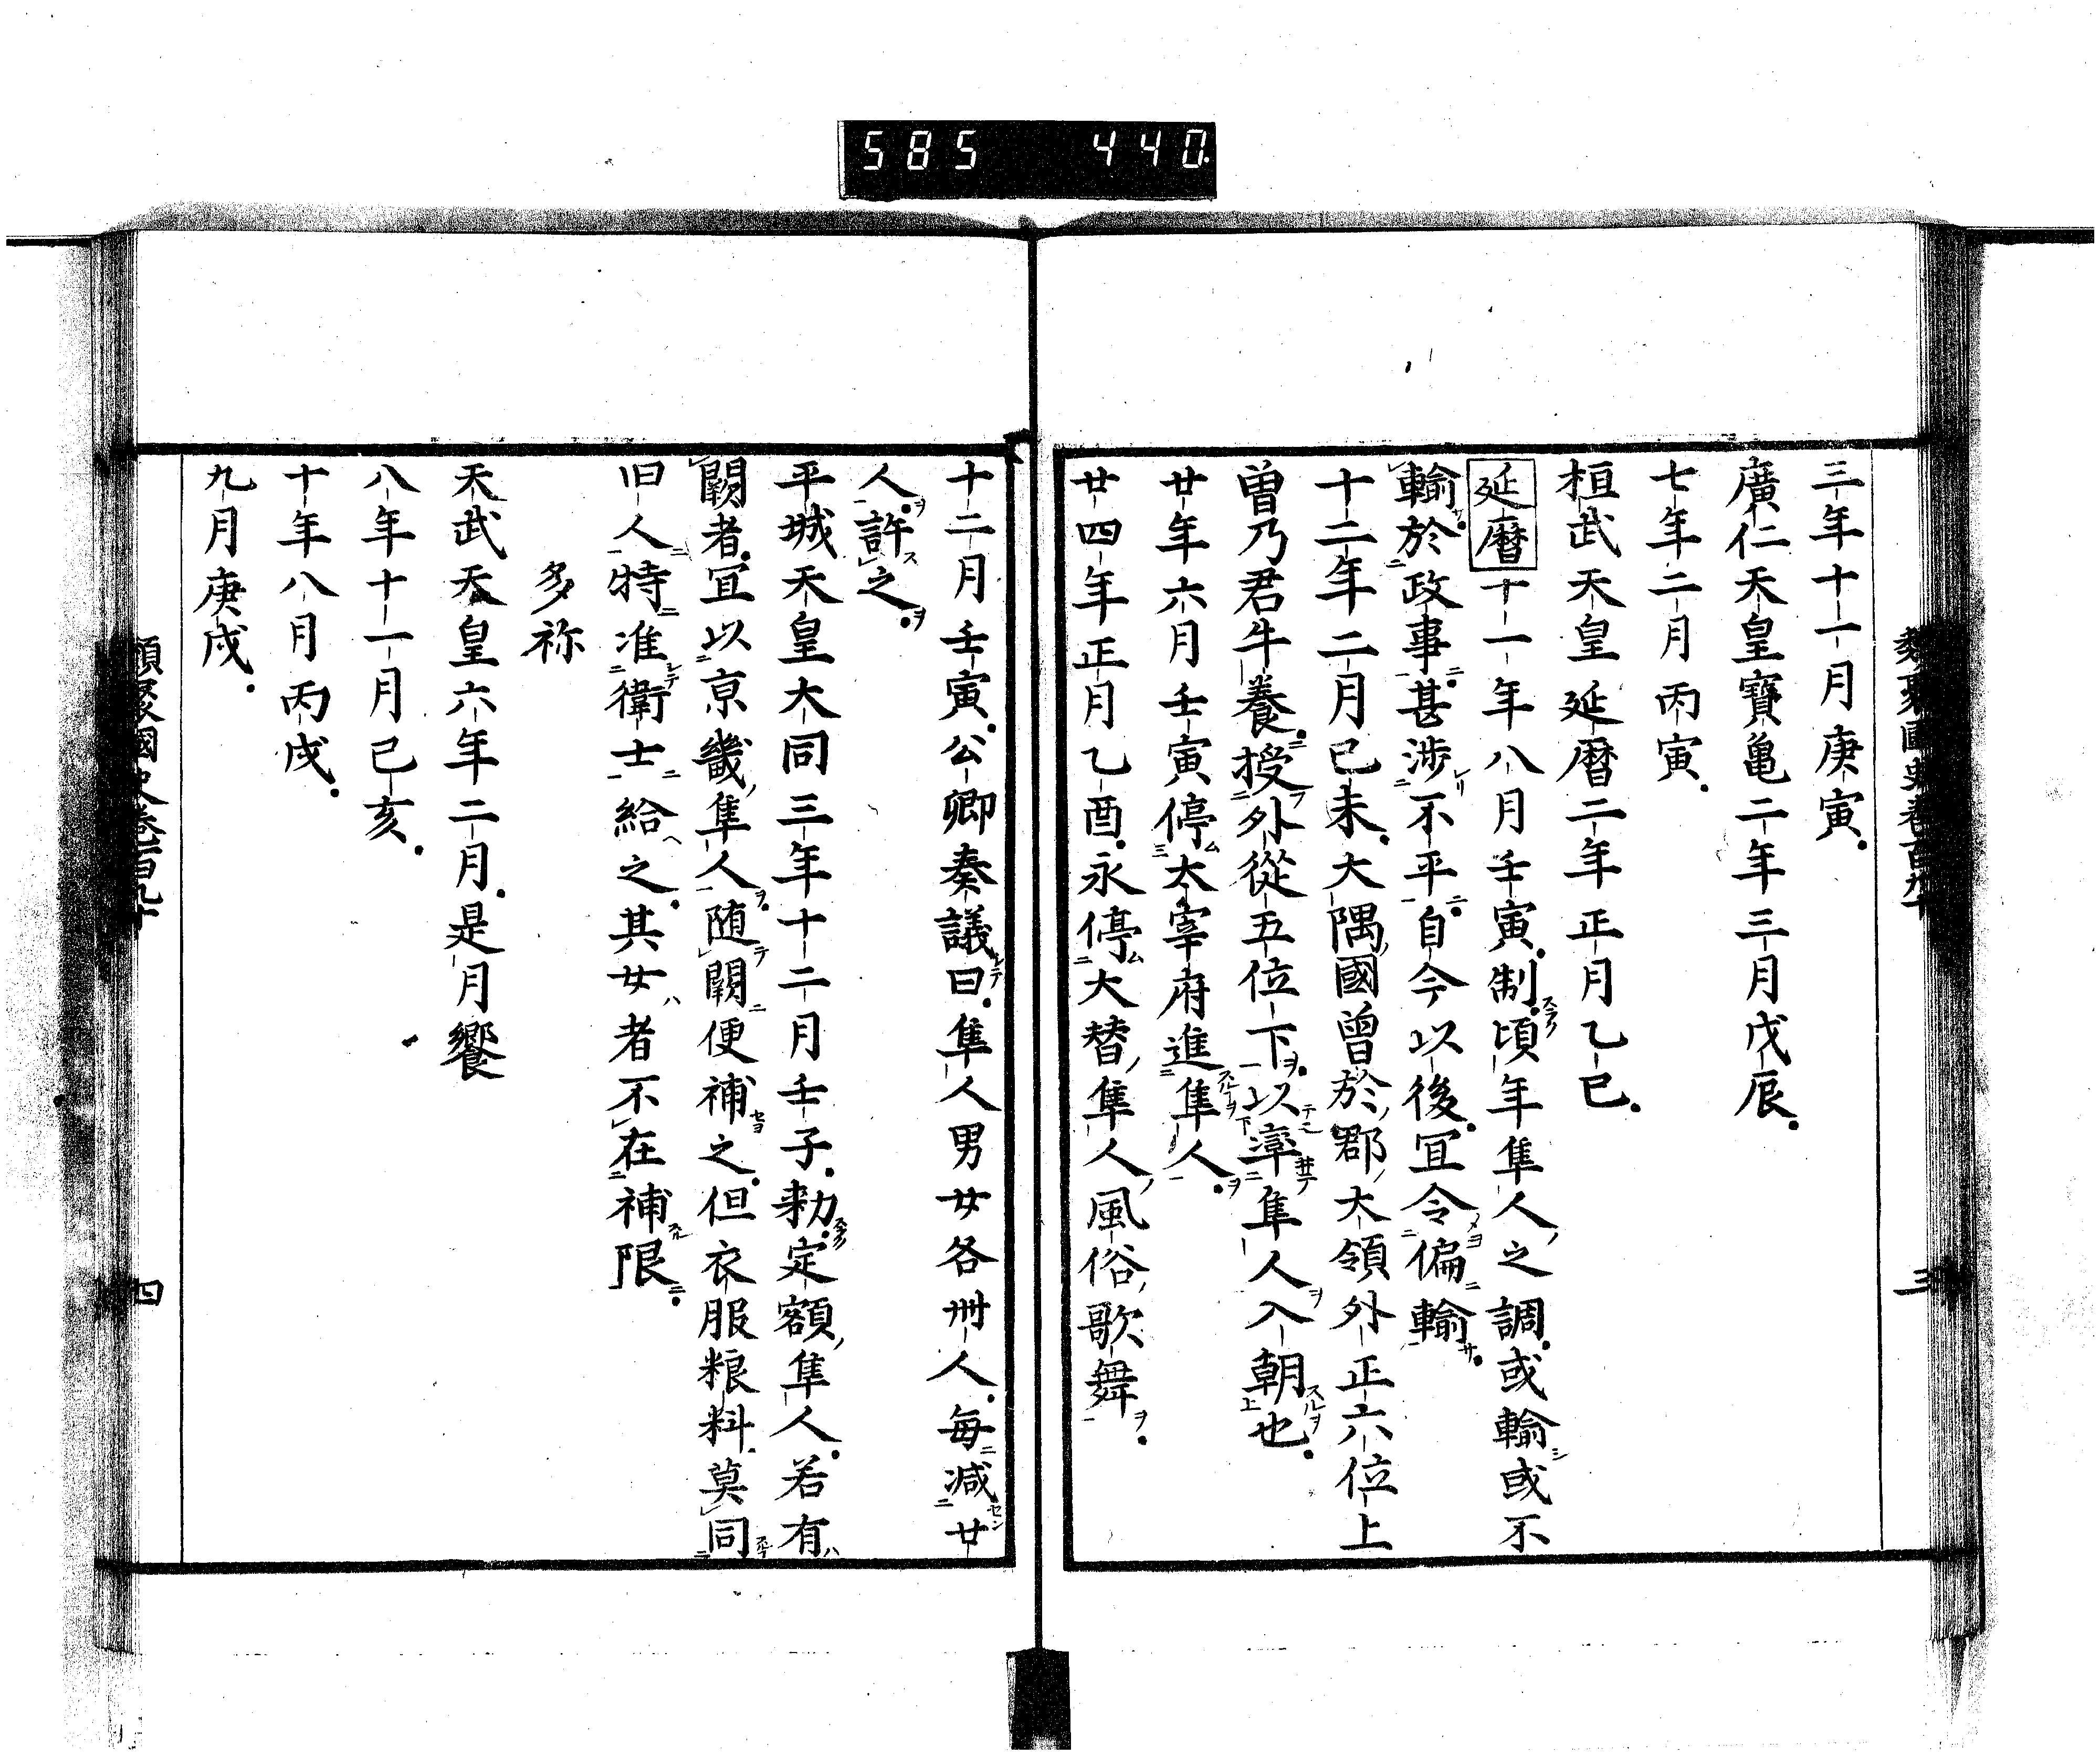 585 440
類聚國史卷百九十
三
三年十一月庚寅
廣仁天皇寶亀二年三月戊辰
七年二月丙寅
桓武天皇延暦二年正月乙巳
延暦十一年八月壬寅制頃年隼人之調或輸或不
輸於政事甚渉不平自今以後宜令偏輸
十二年二月己未大隅國曽於郡大領外正六位上
曽乃君牛養授外從五位下以率隼人入朝也
廿年六月壬寅停太宰府進隼人
廿四年正月乙酉永停大替隼人風俗歌舞
十二月壬寅公卿奏議曰隼人男女各卌人毎減廿
人許之
平城天皇大同三年十二月壬子勅定額隼人若有
闕者宜以京畿隼人随闕便補之但衣服粮料莫同
旧人特准衛士給之其女者不在補限
多祢
天武天皇六年二月是月饗
八年十一月己亥
十年八月丙戌
九月庚戌
類聚國史卷百九十
四